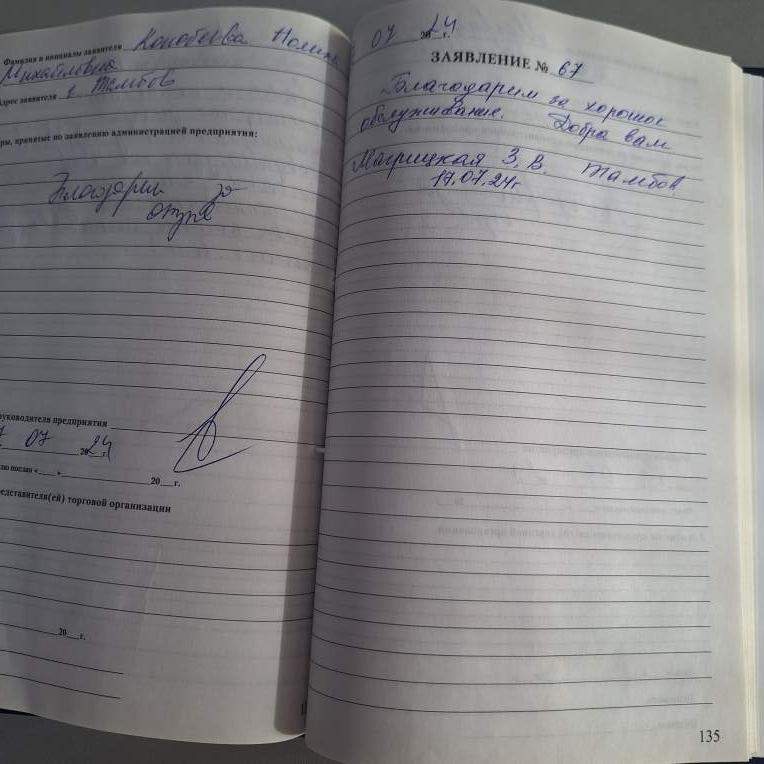 Фамилия и инициалы заявителя Конобеева Полина
Михайловна
Адрес заявителя г Тамбов
ры, принятые по заявлению администрацией предприятия:
Благодарим за
отзыв
руководителя предприятия
07 2024
лю послан «___» 20__г.
редставителя(ей) торговой организации
20__г.
07 2024г.
ЗАЯВЛЕНИЕ № 67
Благодарим за хорошое
обслуживание. Добра вам
Магрицкая З. В. Тамбов
17.07.24г
135